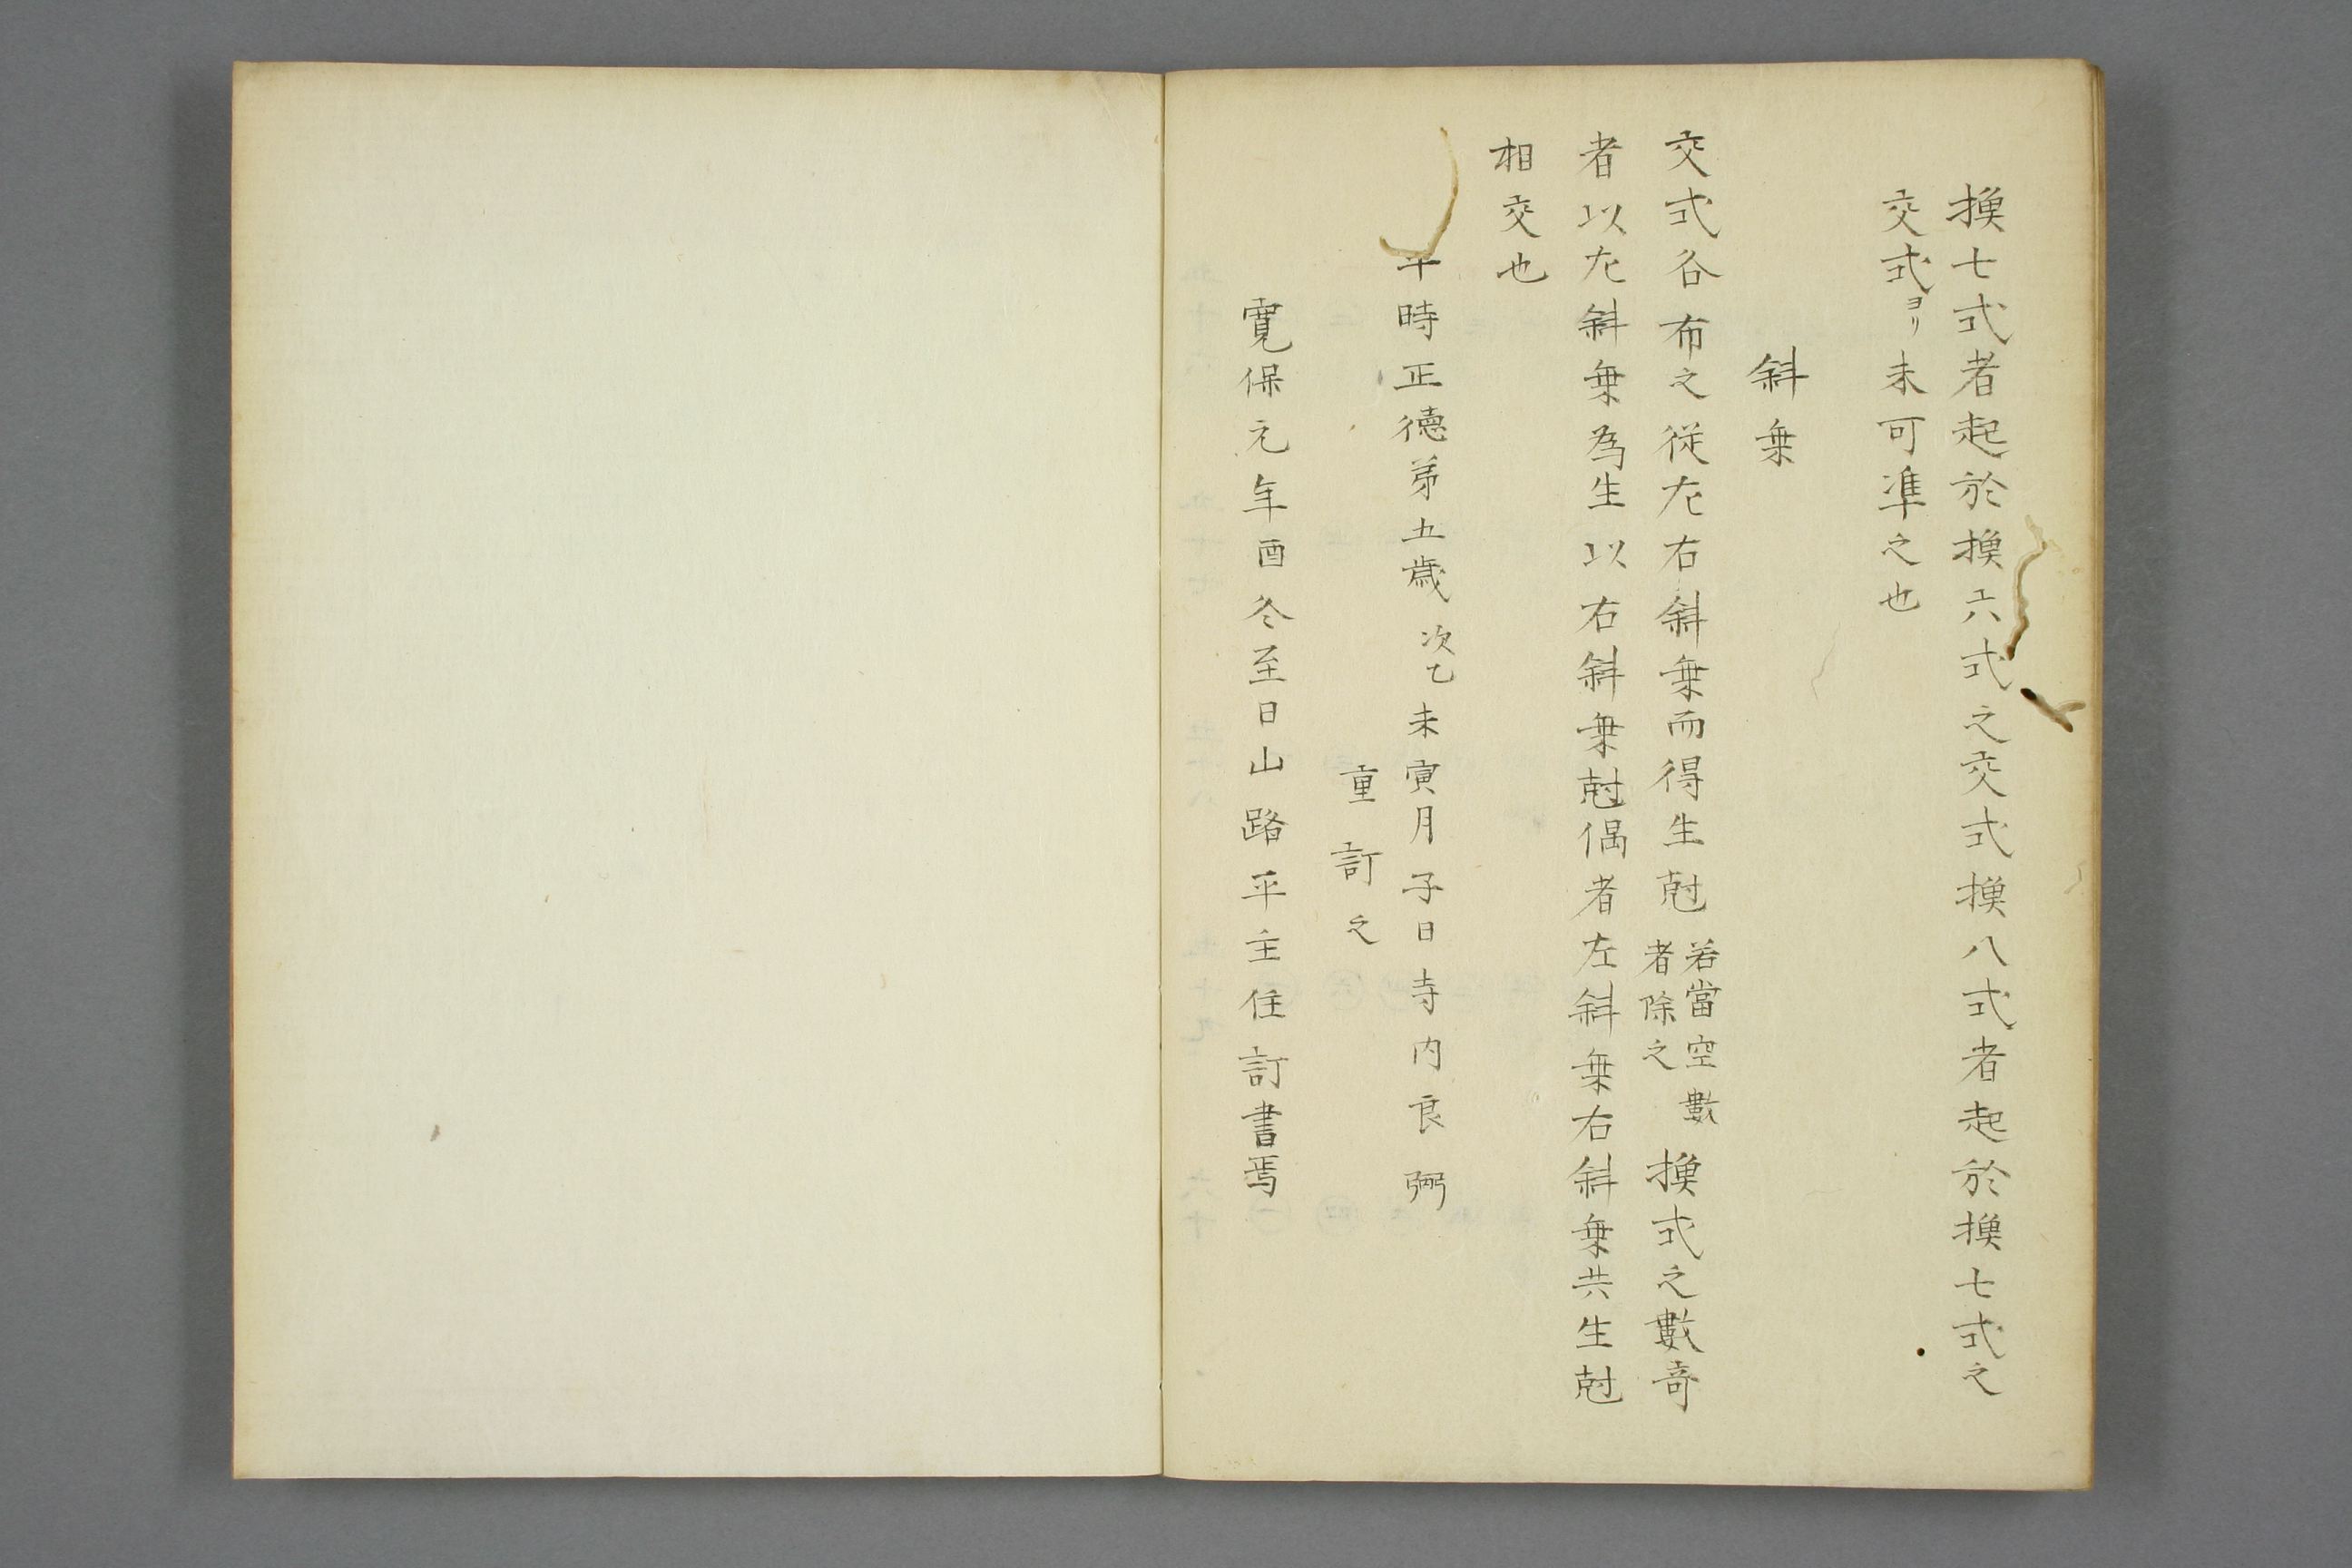 換七式者起於換六式之交式換八式者起於換七式之
交式ヨリ未可準之也
斜乗
交式各布之従左右斜乗而得生尅若當空數者除之換式之數奇
者以左斜乗為生以右斜乗尅偶者左斜乗右斜乗共生尅
相交也
時正德第五歳次乙未寅月子日寺内良弼
重訂之
寛保元年酉冬至日山路平主住訂書焉